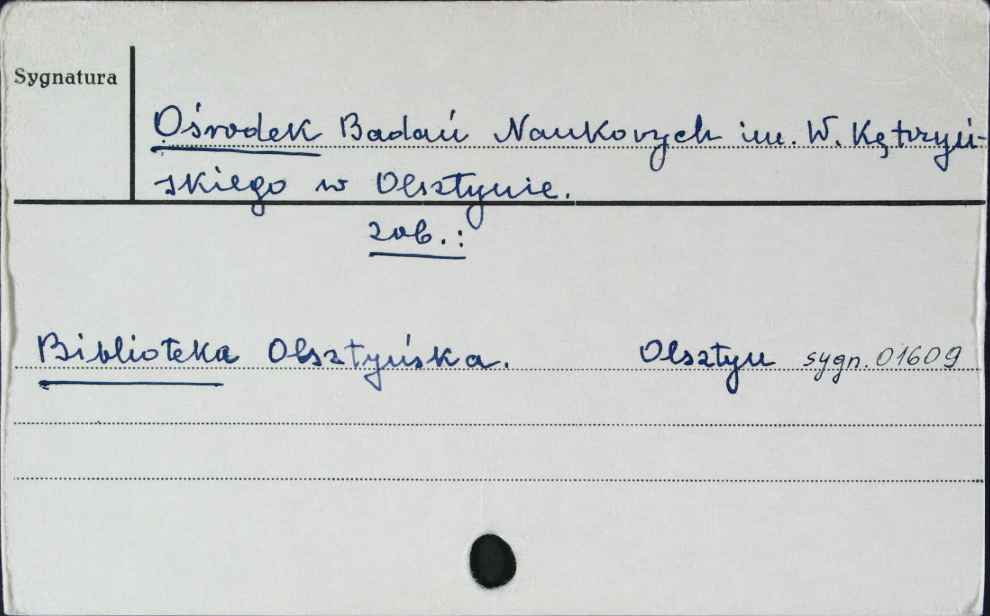 Sygnatura
Ośrodek Badań Naukowych im. W. Kętrzyń-
skiego w Olsztynie.
zob.:
Biblioteka Olsztyńska. Olsztyn sygn. 01609